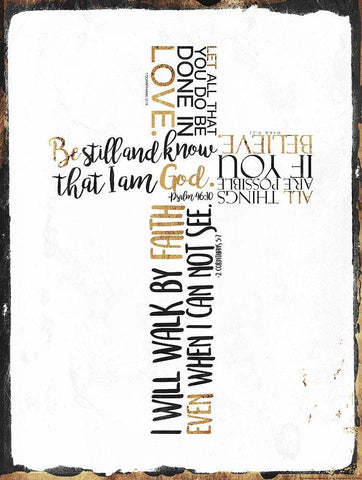 LET ALL THAT
YOU DO BE
DONE IN
LOVE.
1 CORINTHIANS 16:14
Be still and know
that I am God.
-Psalm 46:10
ALL THINGS
ARE POSSIBLE
IF YOU
BELIEVE.
MARK 9:23
I WILL WALK BY FAITH
EVEN WHEN I CAN NOT SEE.
-2 CORINTHIANS 5:7